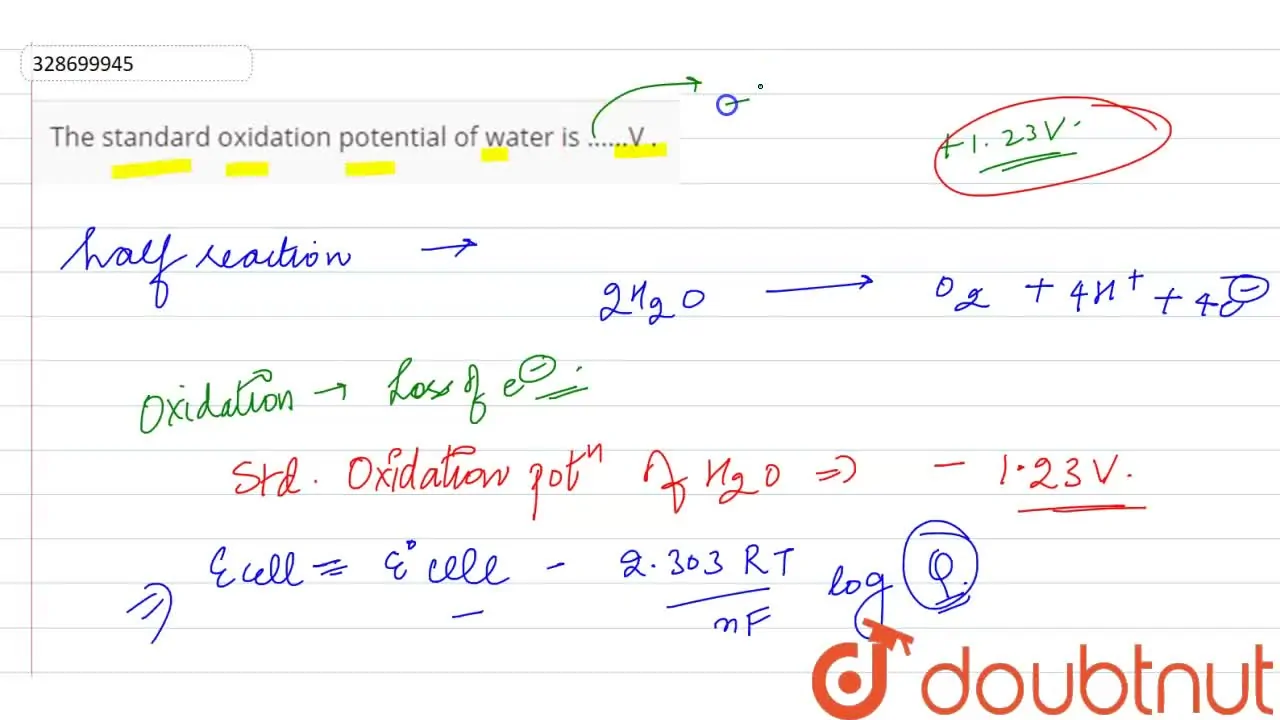 328699945
The standard oxidation potential of water is ......V .
+1.23V.
half reaction →
2H2O ⟶ O2 + 4H+ + 4e⊖
Oxidation → Loss of e⊖.
Std. Oxidation potn of H2O ⇒ - 1.23V.
⇒ Ecell = E°cell - 2.303 RT / nF log Q.
doubtnut